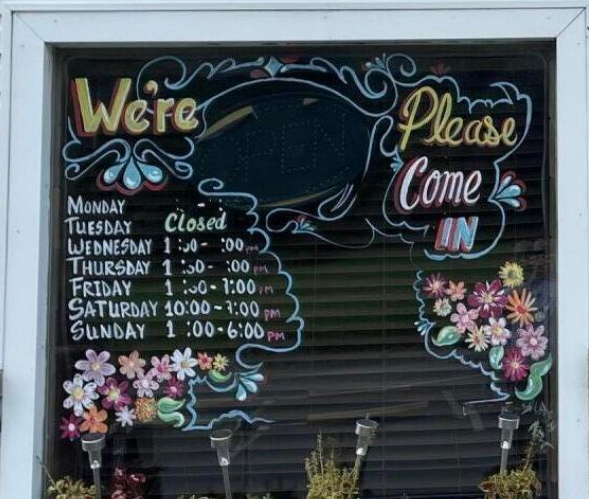 We're
OPEN
Please
Come
IN
MONDAY
TUESDAY Closed
WEDNESDAY 1 :00 - :00 PM
THURSDAY 1 :00 - :00 PM
FRIDAY 1 :00 - 7:00 PM
SATURDAY 10:00 - 7:00 PM
SUNDAY 1 :00 - 6:00 PM